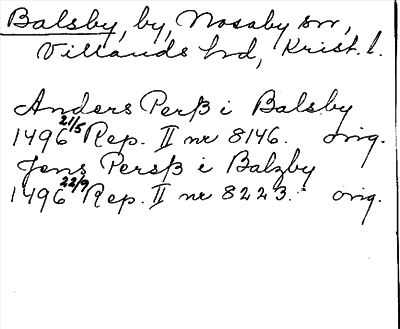 Balsby, by, Nosaby sn,
Villands hd, Krist. l.
Anders Perß i Balsby
1496 21/5 Rep. II nr 8146. orig.
Jens Persß i Balzby
1496 22/9 Rep. II nr 8223. orig.